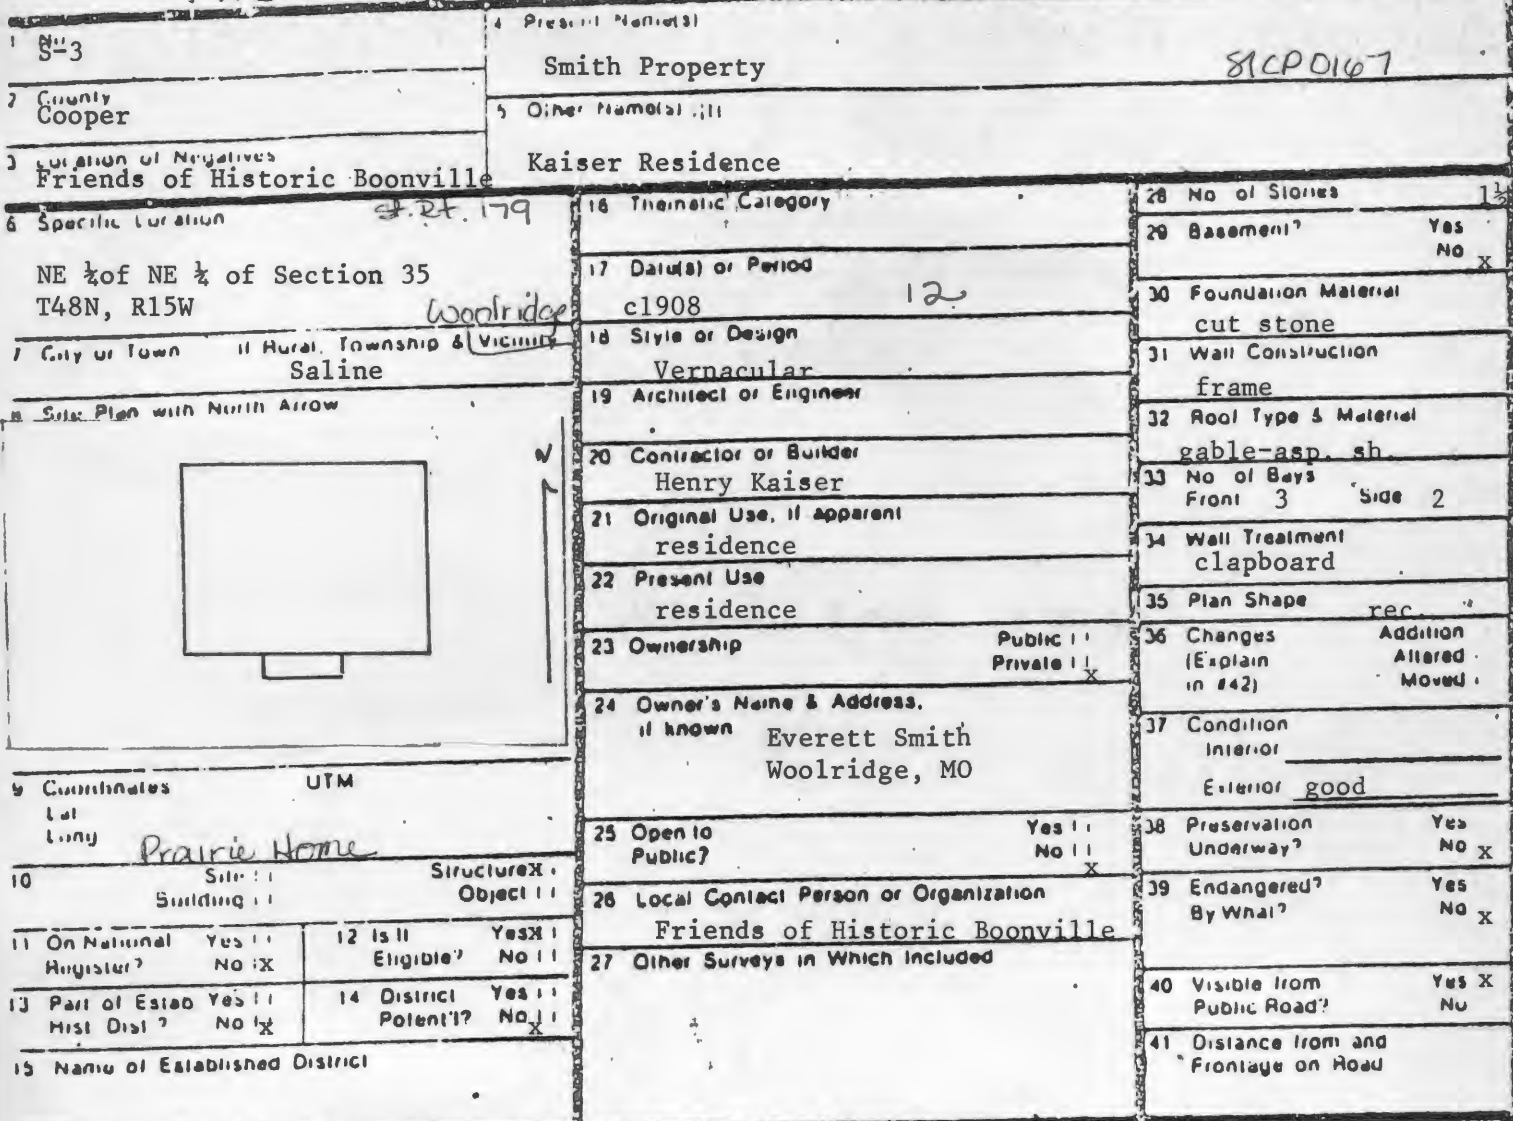 1 No.
S-3
4 Present Name(s)
Smith Property
81CP0167
2 County
Cooper
5 Other Name(s)
Kaiser Residence
3 Location of Negatives
Friends of Historic Boonville
6 Specific Location
St. Rt. 179
NE ¼of NE ¼ of Section 35
T48N, R15W
Woolridge
7 City or Town If Rural, Township & Vicinity
Saline
8 Site Plan with North Arrow
N
9 Coordinates UTM
Lat
Long
Prairie Home
10 Site Structure X
Building Object
11 On National Register? Yes No X
12 Is It Eligible? Yes X No
13 Part of Estab Hist Dist? Yes No X
14 District Potent'l? Yes No X
15 Name of Established District
16 Thematic Category
17 Date(s) or Period
c1908
12
18 Style or Design
Vernacular
19 Architect or Engineer
20 Contractor or Builder
Henry Kaiser
21 Original Use, if apparent
residence
22 Present Use
residence
23 Ownership Public
Private X
24 Owner's Name & Address,
if known
Everett Smith
Woolridge, MO
25 Open to Yes
Public? No X
26 Local Contact Person or Organization
Friends of Historic Boonville
27 Other Surveys in Which Included
28 No of Stories 1½
29 Basement? Yes
No X
30 Foundation Material
cut stone
31 Wall Construction
frame
32 Roof Type & Material
gable-asp. sh.
33 No of Bays
Front 3 Side 2
34 Wall Treatment
clapboard
35 Plan Shape rec.
36 Changes Addition
(Explain Altered
in #42) Moved
37 Condition
Interior
Exterior good
38 Preservation Yes
Underway? No X
39 Endangered? Yes
By What? No X
40 Visible from Yes X
Public Road? No
41 Distance from and
Frontage on Road